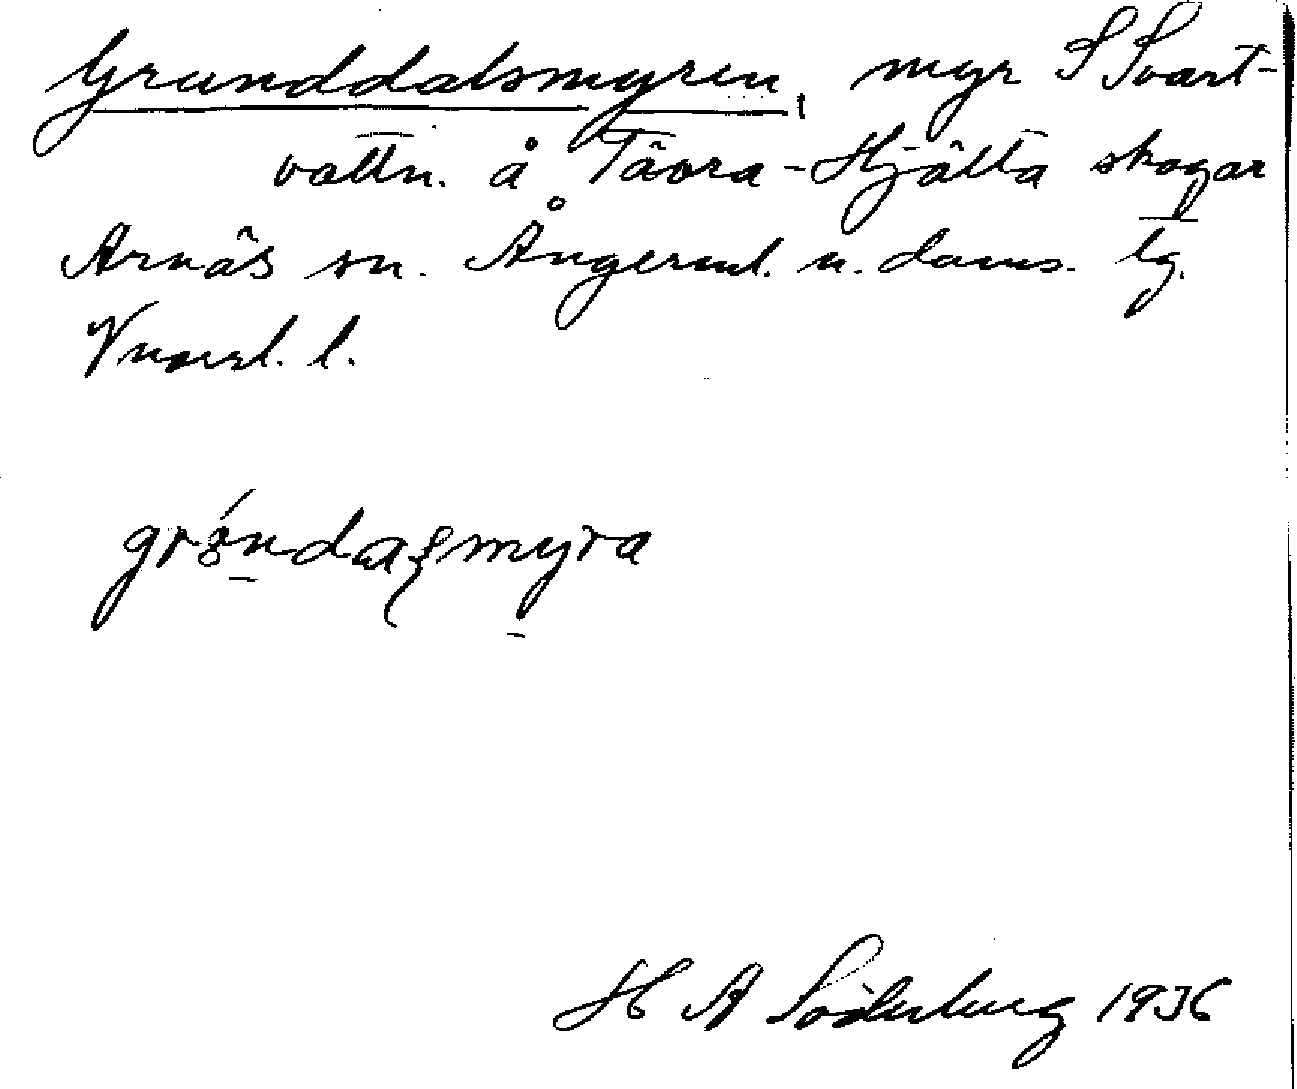 Grunddalsmyren, myr S Svart-
vattn. å Tävra-Hjälta skogar
Arnäs sn. Ångerml. n. doms. lg.
Vnorrl. l.
H A Söderberg 1936